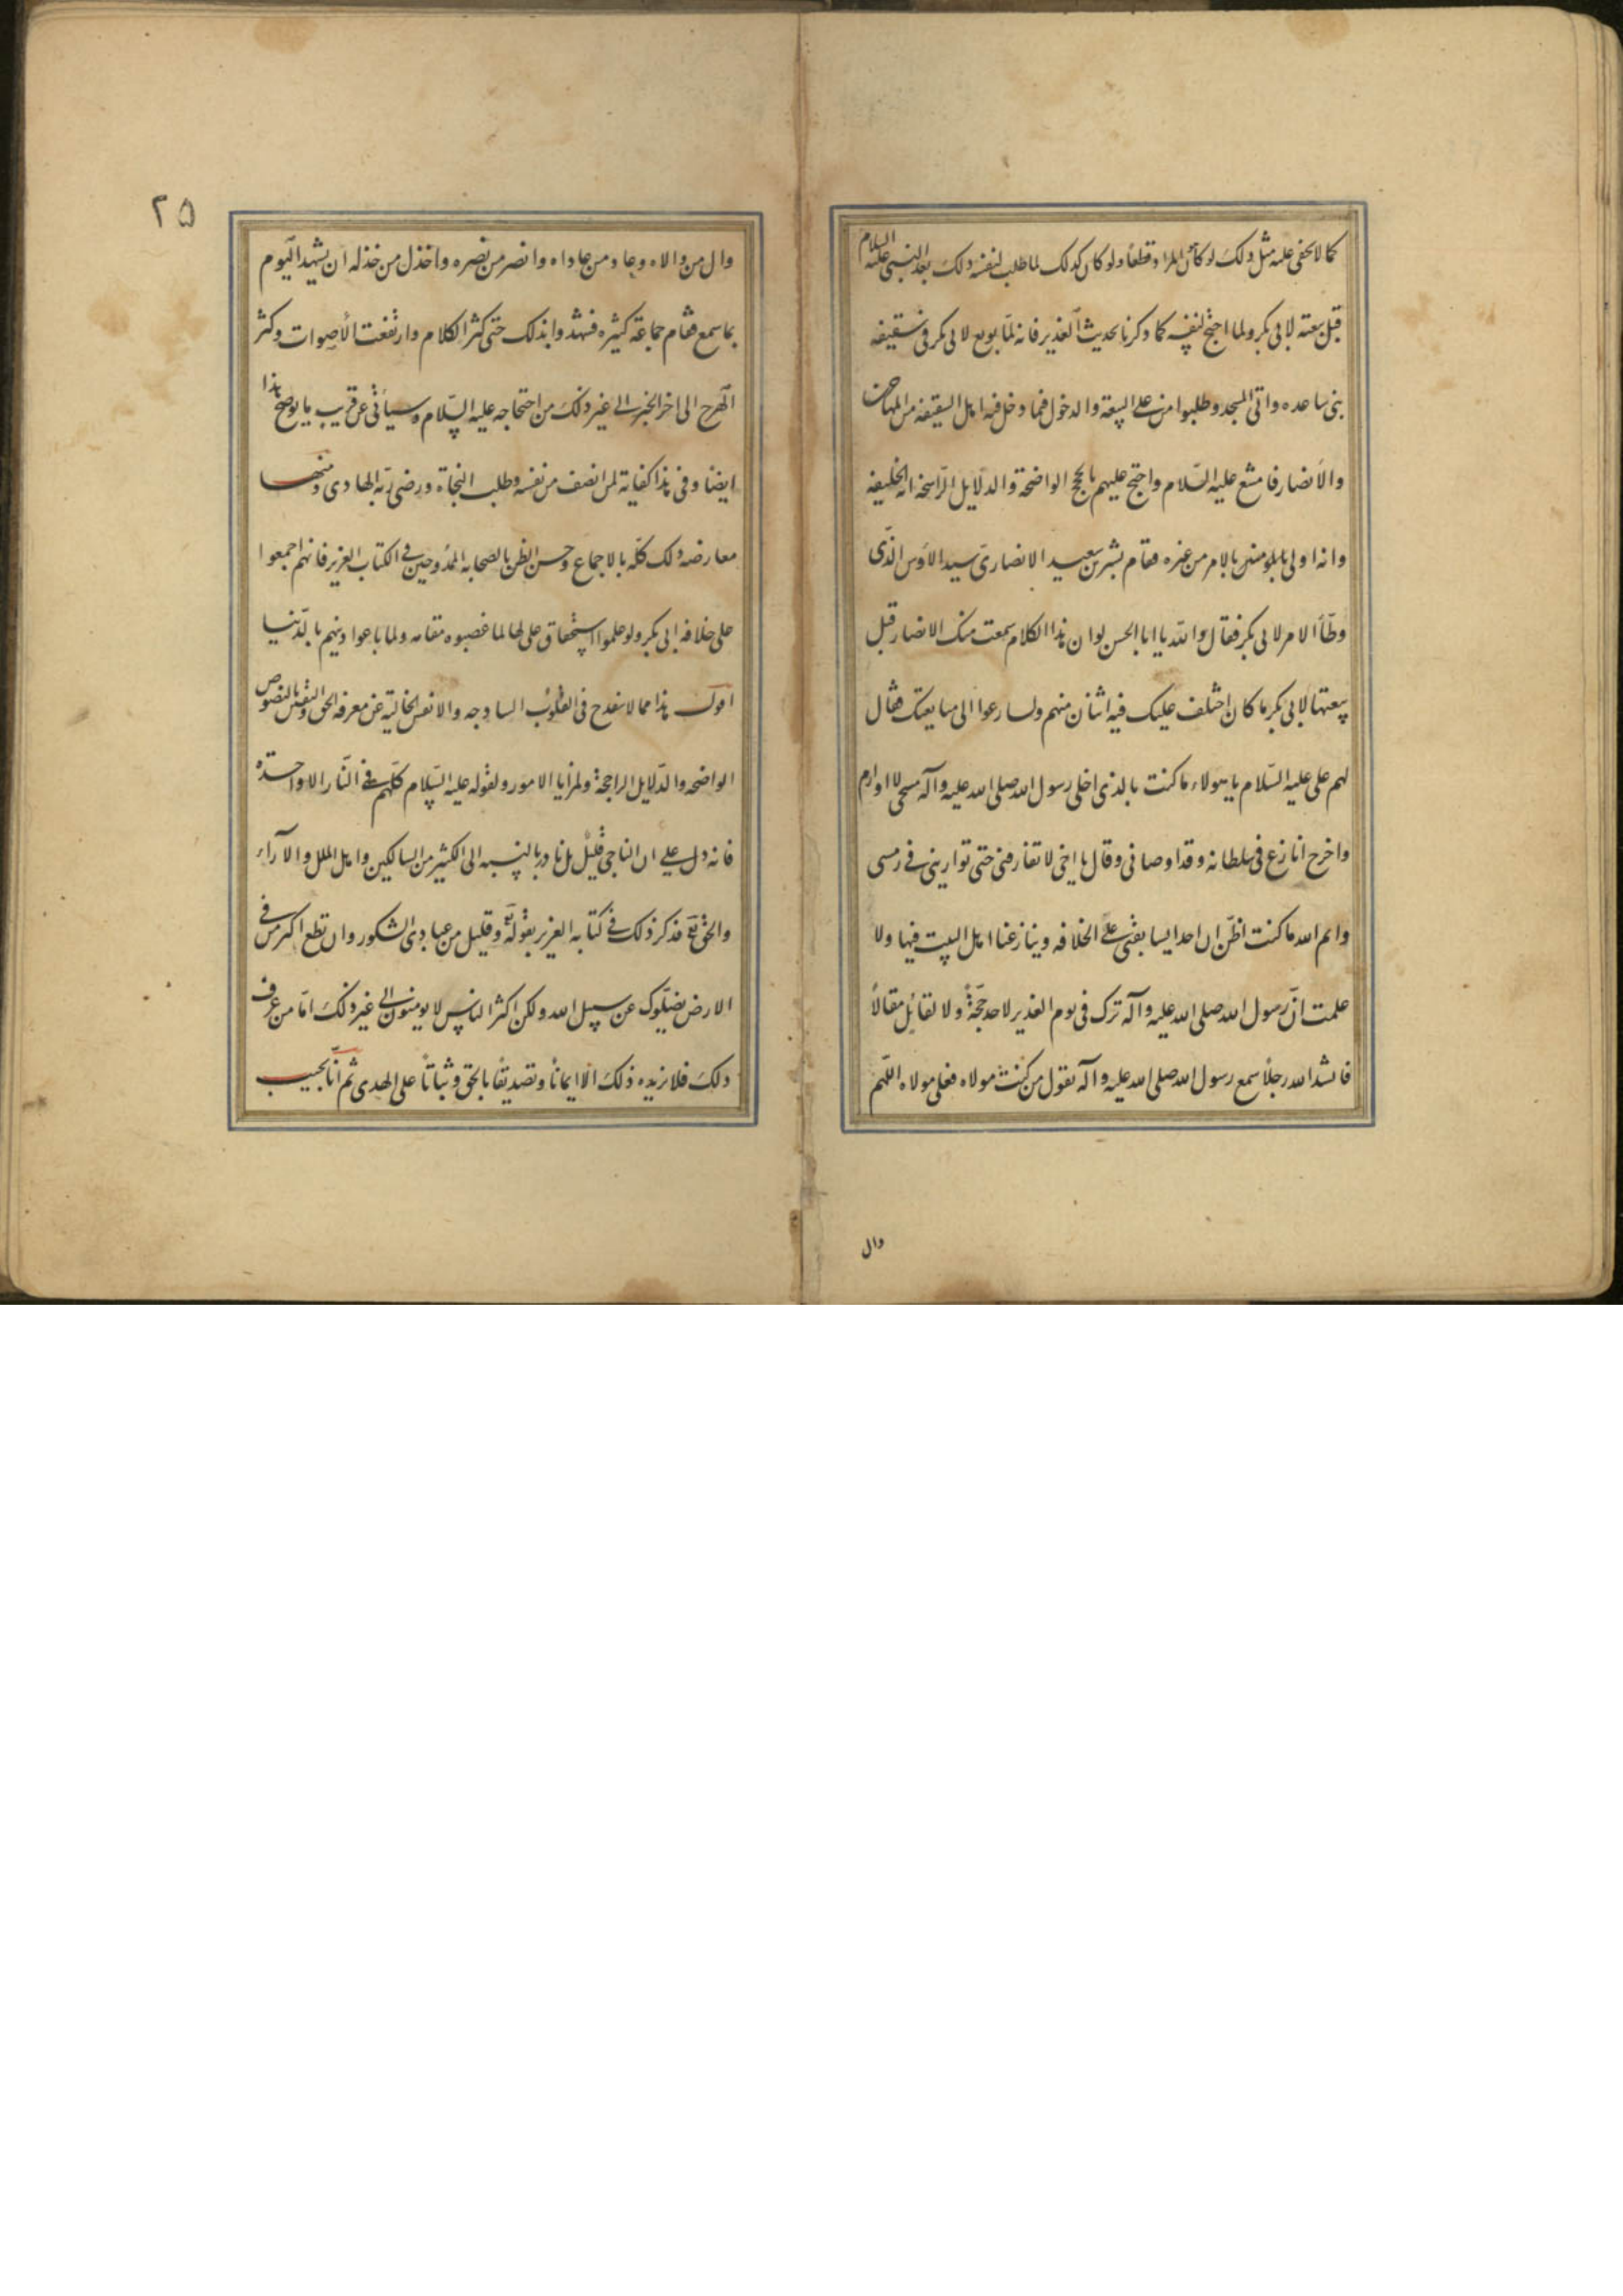 كما لا يخفى عليه مثل ذلك لو كان المراد قطعاً ولو كان كذلك لما طلب لنفسه ذلك بعد النبي عليه السلام
قبل بيعته لابي بكر ولما احتج لنفسه كما ذكرنا بحديث الغدير فانه لما بويع لابي بكر في سقيفه
بني ساعده واتى المسجد وطلبوا من علي البيعة والدخول فيما دخل فيه اهل السقيفه من المهاجرين
والأنصار فامتنع عليه السلام واحتج عليهم بالحجج الواضحة والدلايل الراسخه انه الخليفه
وانه اولى بالمومنين بالامر من غيره فقام بشير بن سعيد الانصاري سيد الاوس الذي
وطّأ الامر لابي بكر فقال والله يا ابا الحسن لو ان هذا الكلام سمعت منك الانصار قبل
بيعتها لابي بكر ما كان اختلف عليك فيه اثنان منهم ولسارعوا الى مبايعتك فقال
لهم علي عليه السلام يا هولاء ما كنت بالذي اخلي رسول الله صلى الله عليه وآله مسجى لا اواريه
واخرج انازع في سلطانه وقد اوصاني وقال يا اخي لا تفارقني حتى تواريني في رمسي
وايم الله ما كنت اظن ان احدا يسابقني على الخلافه وينازعنا اهل البيت فيها ولا
علمت انّ رسول الله صلى الله عليه وآله ترك في يوم الغدير لاحد حجّةً ولا لقائل مقالاً
فانشد الله رجلاً سمع رسول الله صلى الله عليه وآله يقول من كنت مولاه فعلي مولاه اللهم
وال
٢٥
وال من والاه وعاد من عاداه وانصر من نصره واخذل من خذله ان يشهد اليوم
بما سمع فقام جماعة كثيره فشهدوا بذلك حتى كثر الكلام وارتفعت الأصوات وكثر
الهرج الى اخر الخبر الى غير ذلك من احتجاجه عليه السلام وسيأتي عن قريب ما يوضح هذا
ايضاً وفي هذا كفاية لمن انصف من نفسه وطلب النجاة ورضى ربّه الهادي ومنها
معارضه ذلك كلّه بالاجماع وحسن الظن بالصحابه الممدوحين في الكتاب العزيز فانهم اجمعوا
على خلافه ابي بكر ولو علموا استحقاق علي لها لما غصبوه مقامه ولما باعوا دينهم بالدّنيا
اقول هذا مما لا ينقدح في القلوب الساذجه والانفس الخالية عن معرفه الحق والنفس بالنصوص
الواضحه والدلايل الراجحة ولمزايا الامور ولقوله عليه السلام كلهم في النّار الا واحدة
فانه دل على ان الناجي قليل بل نادر بالنسبه الى الكثير من السالكين واهل الملل والآراء
والحق تع قد ذكر ذلك في كتابه العزيز بقوله تع وقليل من عبادي الشكور وان تطع اكثر من في
الارض يضلّوك عن سبيل الله ولكن اكثر الناس لا يومنون الى غير ذلك امّا من عرف
ذلك فلا يزيده ذلك الا ايماناً وتصديقاً بالحق وثباتاً على الهدى ثم انّا نجيب